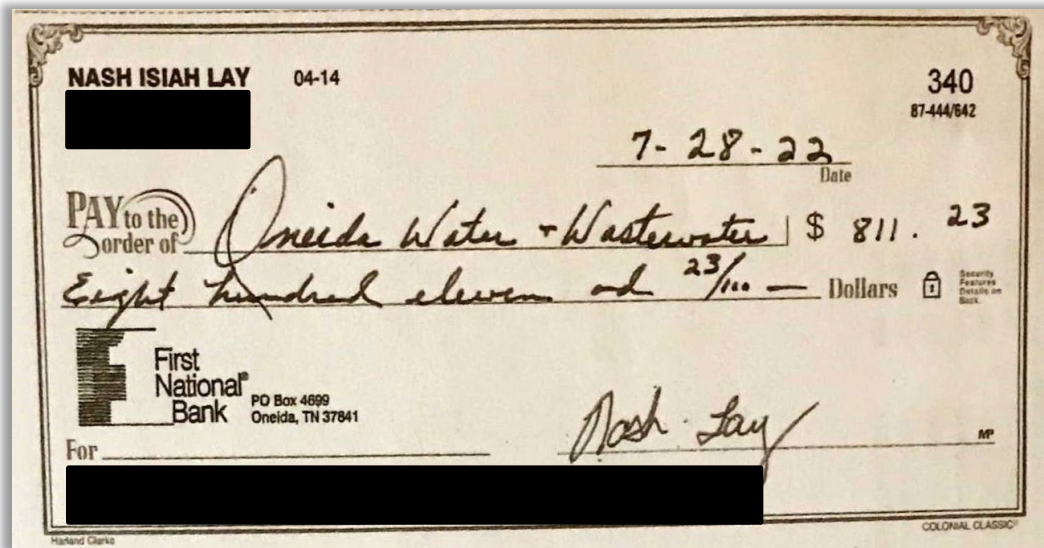 NASH ISIAH LAY 04-14
340
87-444/642
7-28-22
Date
PAY to the order of Oneida Water + Wastewater $ 811.23
Eight hundred eleven and 23/100 — Dollars
Security Features Details on Back.
First National® Bank
PO Box 4699
Oneida, TN 37841
For
Nash Lay
MP
Harland Clarke
COLONIAL CLASSIC®